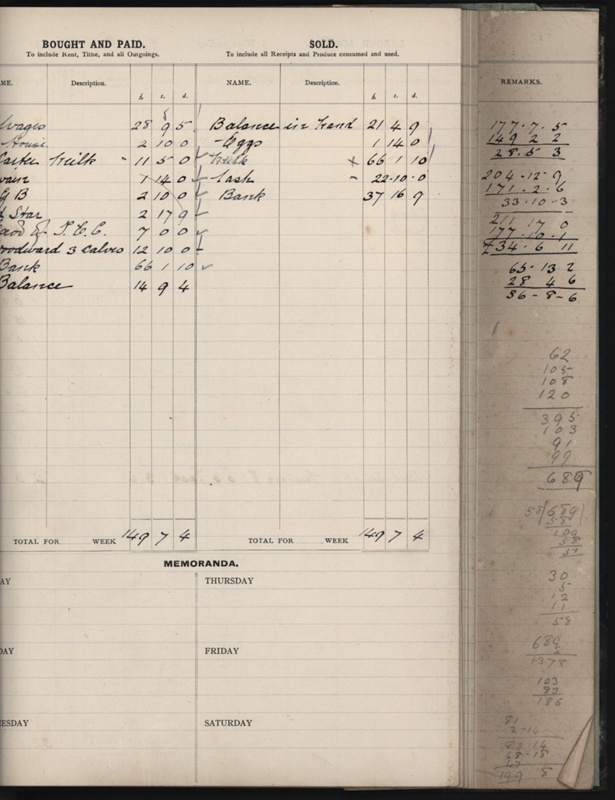 BOUGHT AND PAID.
To include Rent, Tithe, and all Outgoings.
ME. Description. £ s. d.
Wages 28 9 5
House 2 10 0
Carter Milk - 11 5 0
1 14 0
G B 2 10 0
Star 2 17 9
7 0 0
Woodward 3 Calves 12 10 0
Bank 66 1 10
Balance 14 9 4
TOTAL FOR WEEK 149 7 4
SOLD.
To include all Receipts and Produce consumed and used.
NAME. Description. £ s. d.
Balance in hand 21 4 9
- Eggs 1 14 0
Milk x 66 1 10
- Cash - 22-10-0
Bank 37 16 9
TOTAL FOR WEEK 149 7 4
MEMORANDA.
AY THURSDAY
DAY FRIDAY
ESDAY SATURDAY
REMARKS.
177-7-5
149 2 2
28.5 3
204-12-9
171-2-6
33-10-3
211 17 0
177-10-1
34-6 11
65-13 2
28 4 6
36-8-6
62
105
108
120
395
103
91
99
689
58/689
58
109
58
51
30
5
12
11
58
689
2
1378
103
83
186
81
2-14
83-14